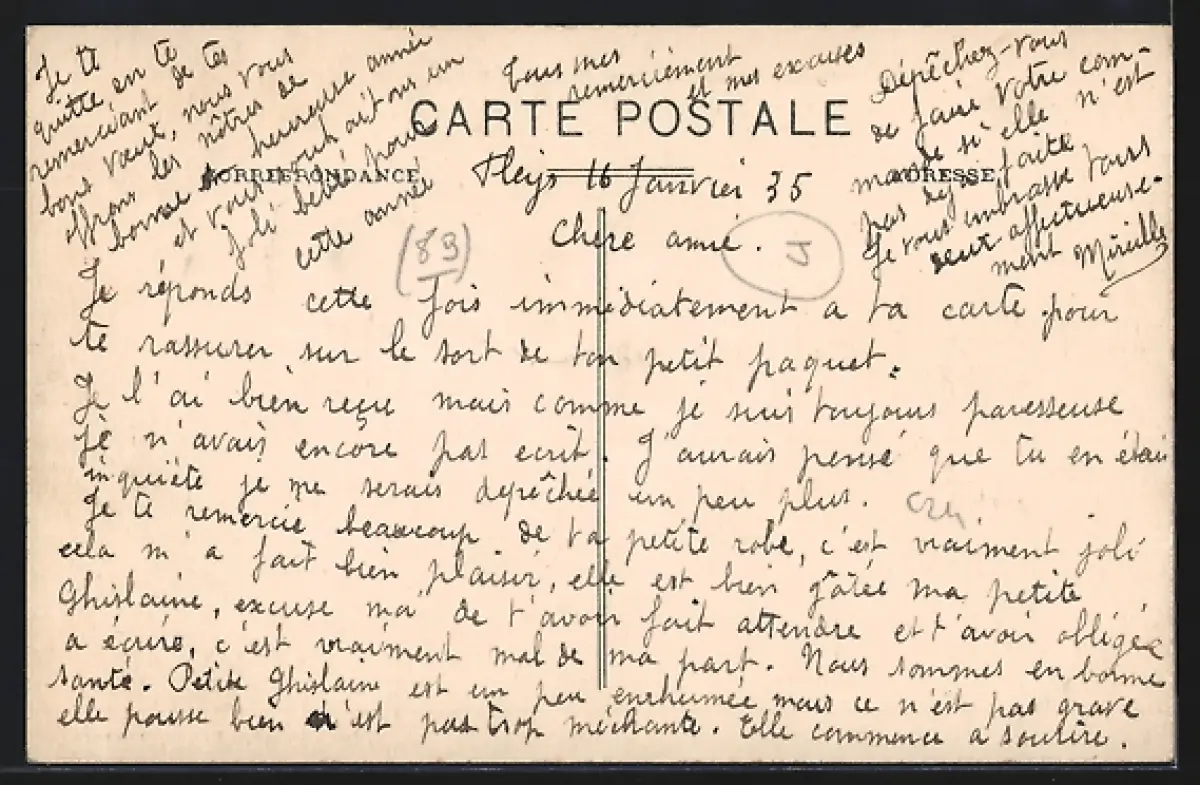 CARTE POSTALE
CORRESPONDANCE
ADRESSE
16 Janvier 35
Chère amie.
(89)
Je réponds cette fois immédiatement a ta carte pour
te rassurer sur le sort de ton petit paquet.
Je l'ai bien reçu mais comme je suis toujours paresseuse
je n'avais encore pas ecrit. J'aurais pensé que tu en étais
inquiéte je me serais depêchée un peu plus.
Je te remercie beaucoup de ta petite robe, c'est vraiment joli
cela m'a fait bien plaisir, elle est bien gâtée ma petite
Ghislaine, excuse ma de t'avoir fait attendre et t'avoir obligée
a écrire, c'est vraiment mal de ma part. Nous sommes en bonne
santé. Petite Ghislaine est un peu enrhumée mais ce n'est pas grave
elle pousse bien n'est pas trop méchante. Elle commence a sourire.
Je te
quitte en te
remerciant de tes
bons vœux, nous vous
offrons les nôtres de
bonne et heureuse année
et vous souhaitons un
joli bébé pour
cette année
Tous mes
remerciement
et mes excuses
Dépêchez-vous
de faire votre com-
mande si elle n'est
pas dejà faite
Je vous embrasse tours
deux affectueuse-
ment Mireille